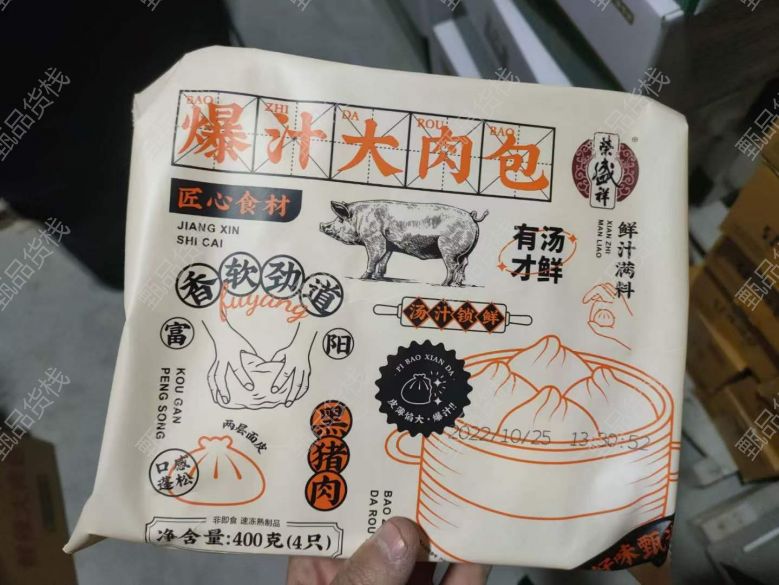 BAO ZHI DA ROU BAO
爆汁大肉包
荣盛祥
®
匠心食材
JIANG XIN
SHI CAI
有汤
才鲜
鲜汁满料
XIAN ZHI
MAN LIAO
香软劲道
fuyang
富阳
汤汁锁鲜
PI BAO XIAN DA
皮薄馅大·爆汁!
KOU GAN
PENG SONG
两层面皮
口感
蓬松
黑猪肉
2022/10/25 13:50:52
非即食 速冻熟制品
净含量:400克(4只)
BAO
DA ROU
好味甄
甄品货栈